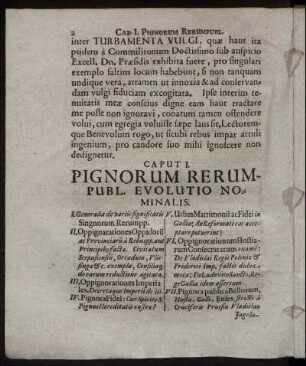 2 CAP. I. PIGNORUM RERUMPUBL.
inter TURBAMENTA VULGI, quæ haut ita
pridem à Commilitonum Doctissimo sub auspicio
Excell. Dn. Præsidis exhibita fuere, pro singulari
exemplo saltim locum habebunt, si non tanquam
undique vera, attamen ut innoxia & ad conservan-
dam vulgi fiduciam excogitata. Ipse interim te-
nuitatis meæ conscius digne eam haut tractare
me posse non ignoravi, conatum tamen ostendere
volui, cum egregia voluisse sæpe laus sit, Lectorem-
que Benevolum rogo, ut sicubi rebus impar attuli
ingenium, pro candore suo mihi ignoscere non
dedignetur.
CAPUT I.
PIGNORUM RERUM-
PUBL. EVOLUTIO NO-
MINALIS.
I. Generalia de variis significatis
Pignorum Rerumpp.
II, Oppignorationes Oppidorũ
ac Provinciarũ à Rebuspp. aut
Principib9 factæ, Civitatum
Scepusiensiũ, Orcadum, Vlis-
singæ &c. exempla, Consiliaq;
de earum reductione agitata.
III. Oppignorationes Imperia
les. Decretaque Imperii de iis.
IV. Pignora Fidei: Cur Spiritus S.
Pignus Hereditatis nostræ?
V. Urbes Matrimonii ac Fidei in
Gallia; An Reformati eas acce-
ptare potuerint?
VI. Oppignorationum Hostia-
rum Consecratarum exempla:
De Vladislai Regis Poloniæ &
Friderici Imp. factis dubita-
mus; De Ludovico Sancto, Re-
ge Galliæ idem asserium
VII. Pignora publica Bellorum,
Hasta, Gladii, Enses stricti à
Cruciferis Prussiæ Vladislao
Jagello.